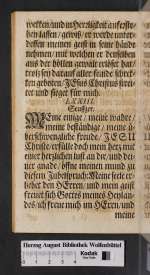 wecken/und in Herrligkeit auferste-
hen lassen/gewiß/er werde unter-
dessen meinen geist in seine hände
nehmen/mit welchen er denselben
aus der höllen gewalt erlöset hat/
troß sey darauf aller feinde schreck-
ken geboten/JEsus Christus strei-
tet und sieget für mich.
LXXIII.
Seufzer.
MEine einige/meine wahre/
meine beständige/meine ü-
berschwengliche freude/JESU
Christe/erfülle doch mein hertz mit
einer hertzlichen lust an dir/und dei-
ner gnade/öffne meinen mund zu
diesem Jubelspruch: Meine seele er-
hebet den HErren/und mein geist
freuet sich Gottes meines Heylan-
des/ich freue mich im HErrn/und
meine
Herzog August Bibliothek Wolfenbüttel
Kodak